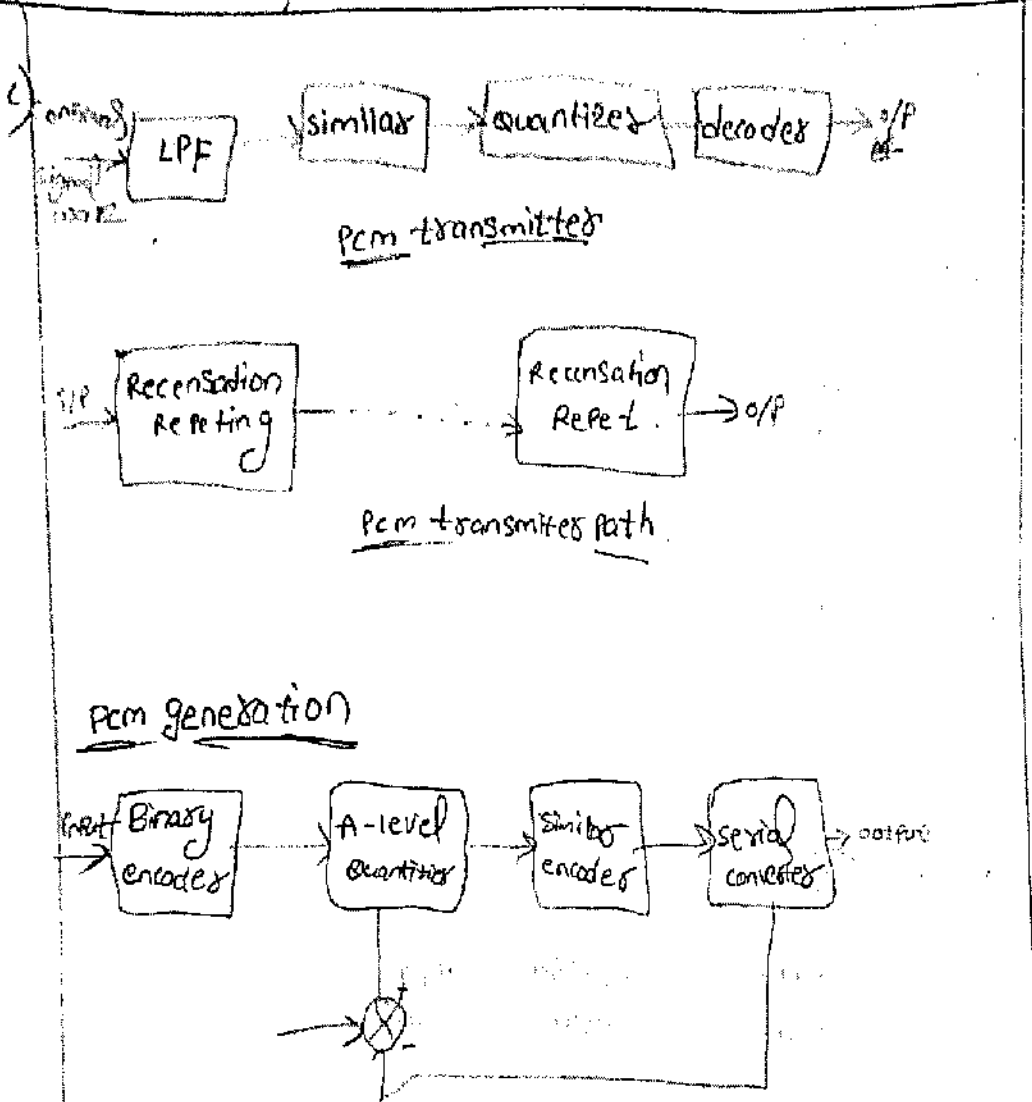 c)
LPF
similar
quantizer
decoder
o/p
Pcm transmitter
i/P
Recensation
Repeting
Recensation
Repet.
o/p
Pcm transmiter Path
Pcm generation
input
Binary
encoder
A-level
Quantizer
Similar
encoder
serial
converter
output
+
-